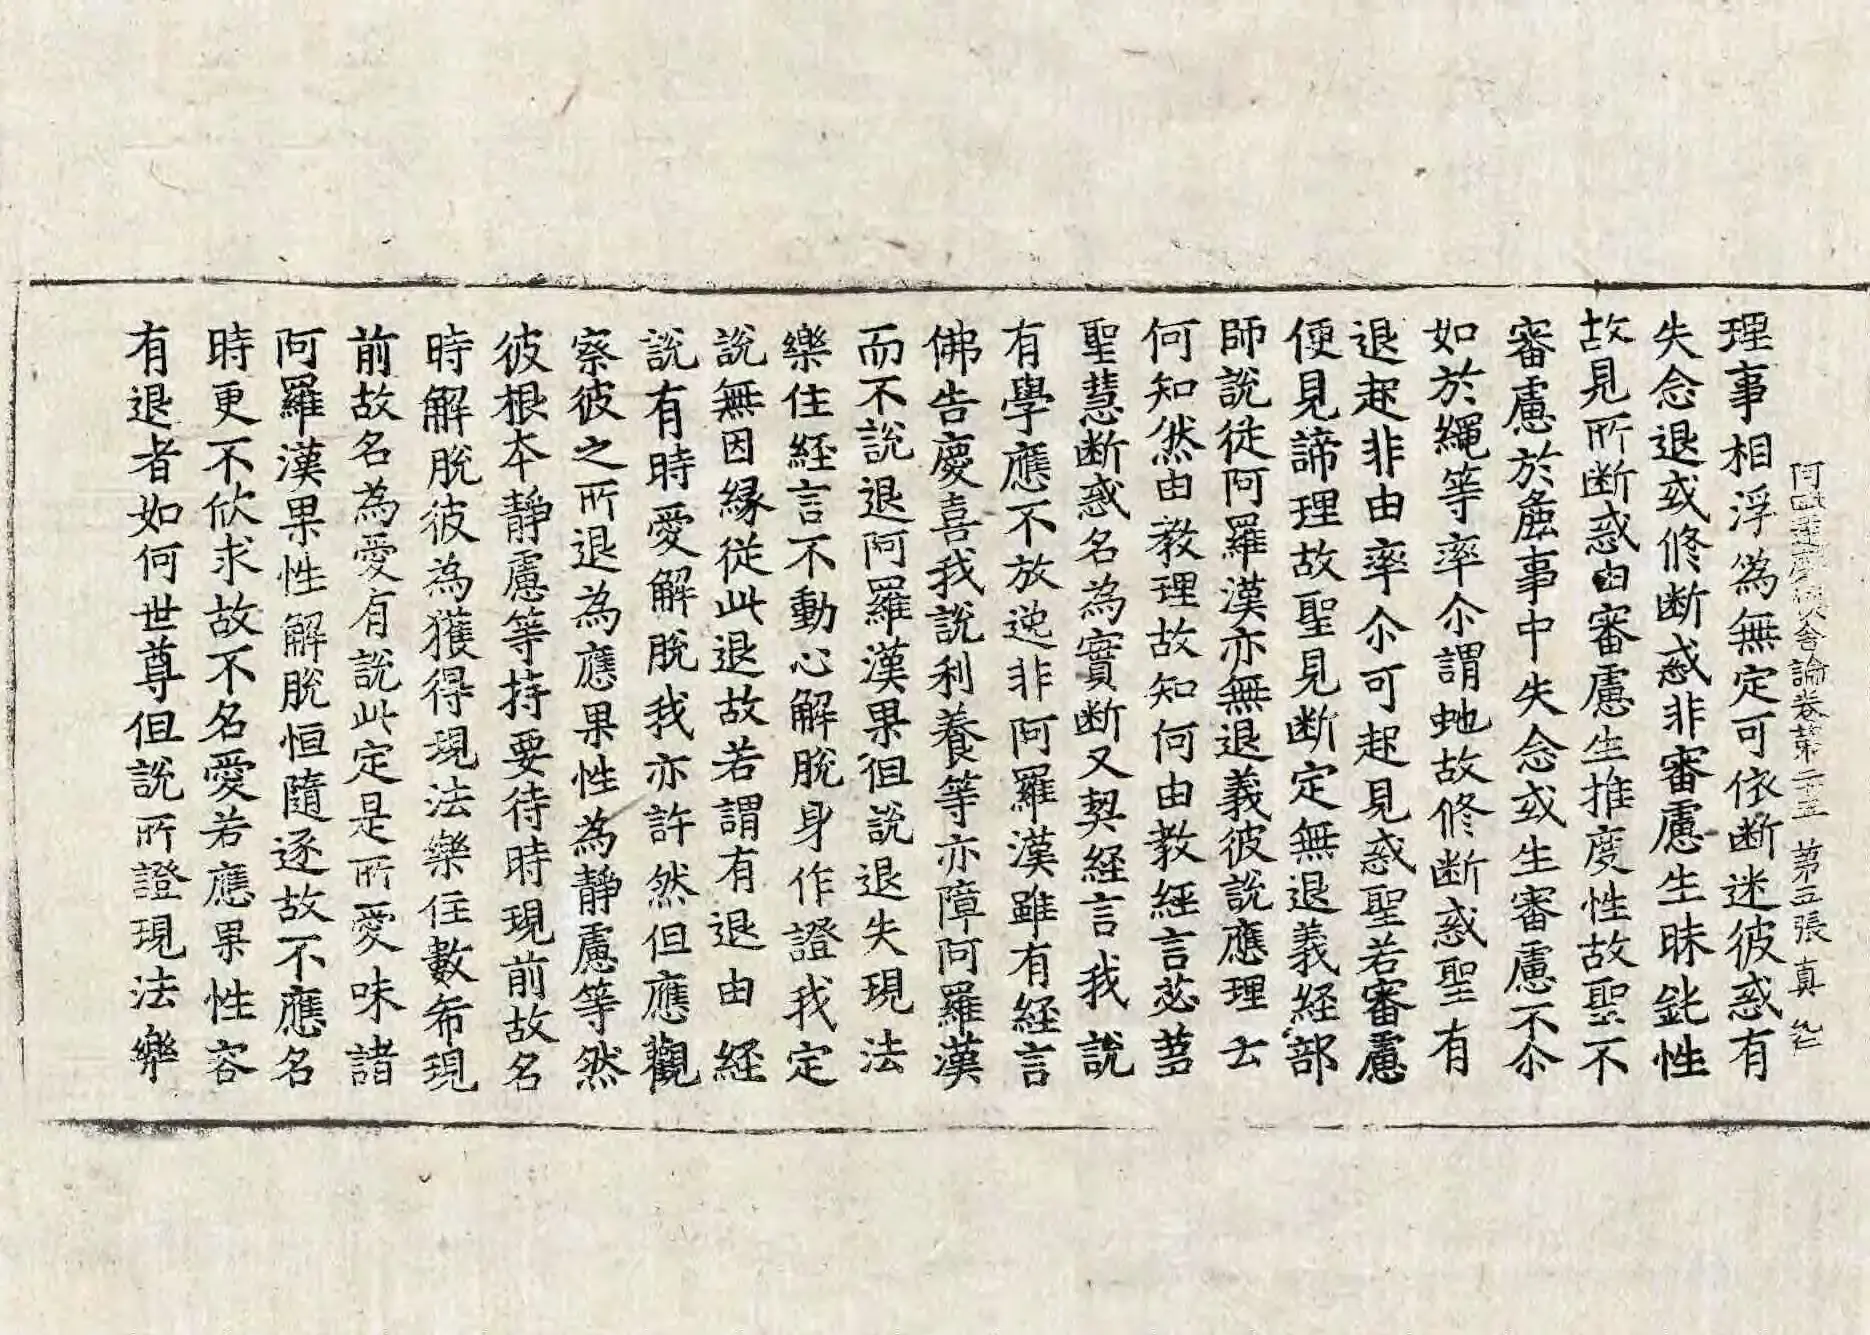 阿毗達磨俱舍論卷第二十五 第五張 真
理事相浮為無定可依斷迷彼惑有
失念退或修斷惑非審慮生昧鈍性
故見所斷惑由審慮生推度性故聖不
審慮於麁事中失念或生審慮不尒
如於繩等率尒謂虵故修斷惑聖有
退起非由率尒可起見惑聖若審慮
便見諦理故聖見斷定無退義経部
師說從阿羅漢亦無退義彼說應理云
何知然由教理故知何由教經言苾芻
聖慧斷惑名為實斷又契経言我說
有學應不放逸非阿羅漢雖有経言
佛告慶喜我說利養等亦障阿羅漢
而不說退阿羅漢果但說退失現法
樂住経言不動心解脫身作證我定
說無因緣從此退故若謂有退由経
說有時愛解脫我亦許然但應觀
察彼之所退為應果性為靜慮等然
彼根本靜慮等持要待時現前故名
時解脫彼為獲得現法樂住數希現
前故名為愛有說此定是所愛味諸
阿羅漢果性解脫恒隨逐故不應名
時更不欣求故不名愛若應果性容
有退者如何世尊但說所證現法樂